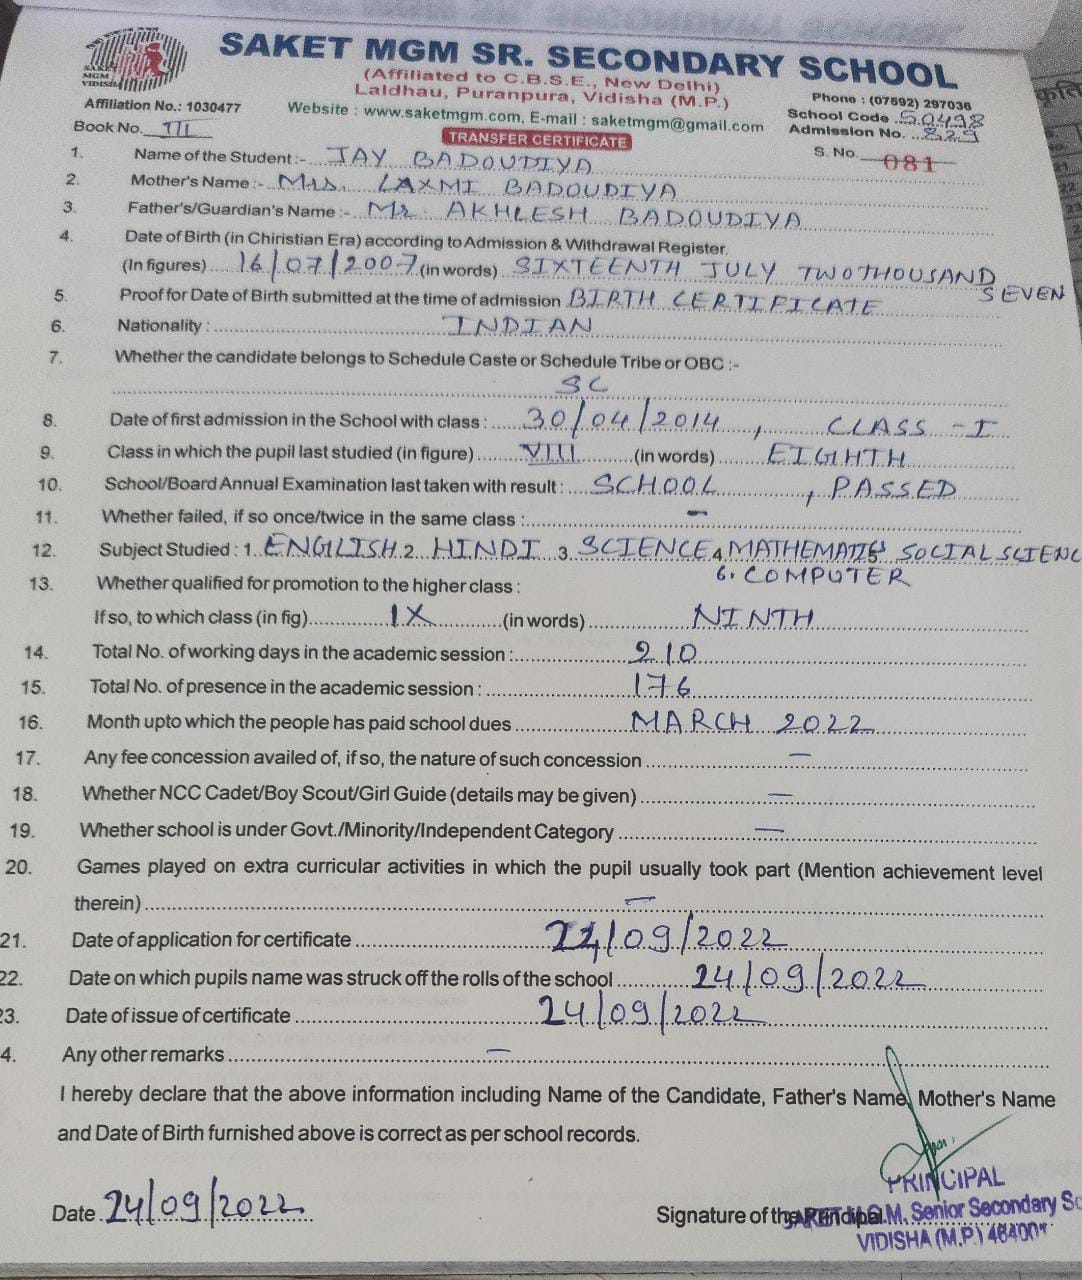 SAKET MGM SR. SECONDARY SCHOOL
SAKET MGM VIDISHA
(Affiliated to C.B.S.E., New Delhi)
Laldhau, Puranpura, Vidisha (M.P.)
Affiliation No.: 1030477
Phone : (07592) 297036
Website : www.saketmgm.com, E-mail : saketmgm@gmail.com
School Code 50498
Book No. III
Admission No. 829
TRANSFER CERTIFICATE
S. No. 081
1. Name of the Student :- JAY BADOUDIYA
2. Mother's Name :- Mrs. LAXMI BADOUDIYA
3. Father's/Guardian's Name :- Mr. AKHLESH BADOUDIYA
4. Date of Birth (in Chiristian Era) according to Admission & Withdrawal Register.
(In figures) 16/07/2007 (in words) SIXTEENTH JULY TWO THOUSAND SEVEN
5. Proof for Date of Birth submitted at the time of admission BIRTH CERTIFICATE
6. Nationality : INDIAN
7. Whether the candidate belongs to Schedule Caste or Schedule Tribe or OBC :-
SC
8. Date of first admission in the School with class : 30/04/2014, CLASS - I
9. Class in which the pupil last studied (in figure) VIII (in words) EIGHTH
10. School/Board Annual Examination last taken with result : SCHOOL, PASSED
11. Whether failed, if so once/twice in the same class : -
12. Subject Studied : 1. ENGLISH 2. HINDI 3. SCIENCE 4. MATHEMATICS 5. SOCIAL SCIENC
6. COMPUTER
13. Whether qualified for promotion to the higher class :
If so, to which class (in fig) IX (in words) NINTH
14. Total No. of working days in the academic session : 210
15. Total No. of presence in the academic session : 176
16. Month upto which the people has paid school dues MARCH 2022
17. Any fee concession availed of, if so, the nature of such concession —
18. Whether NCC Cadet/Boy Scout/Girl Guide (details may be given) —
19. Whether school is under Govt./Minority/Independent Category —
20. Games played on extra curricular activities in which the pupil usually took part (Mention achievement level
therein) —
21. Date of application for certificate 22/09/2022
22. Date on which pupils name was struck off the rolls of the school 24/09/2022
23. Date of issue of certificate 24/09/2022
4. Any other remarks —
I hereby declare that the above information including Name of the Candidate, Father's Name, Mother's Name
and Date of Birth furnished above is correct as per school records.
PRINCIPAL
Date 24/09/2022
Signature of the Principal
SAKET M.G.M. Senior Secondary Sc
VIDISHA (M.P.) 464001